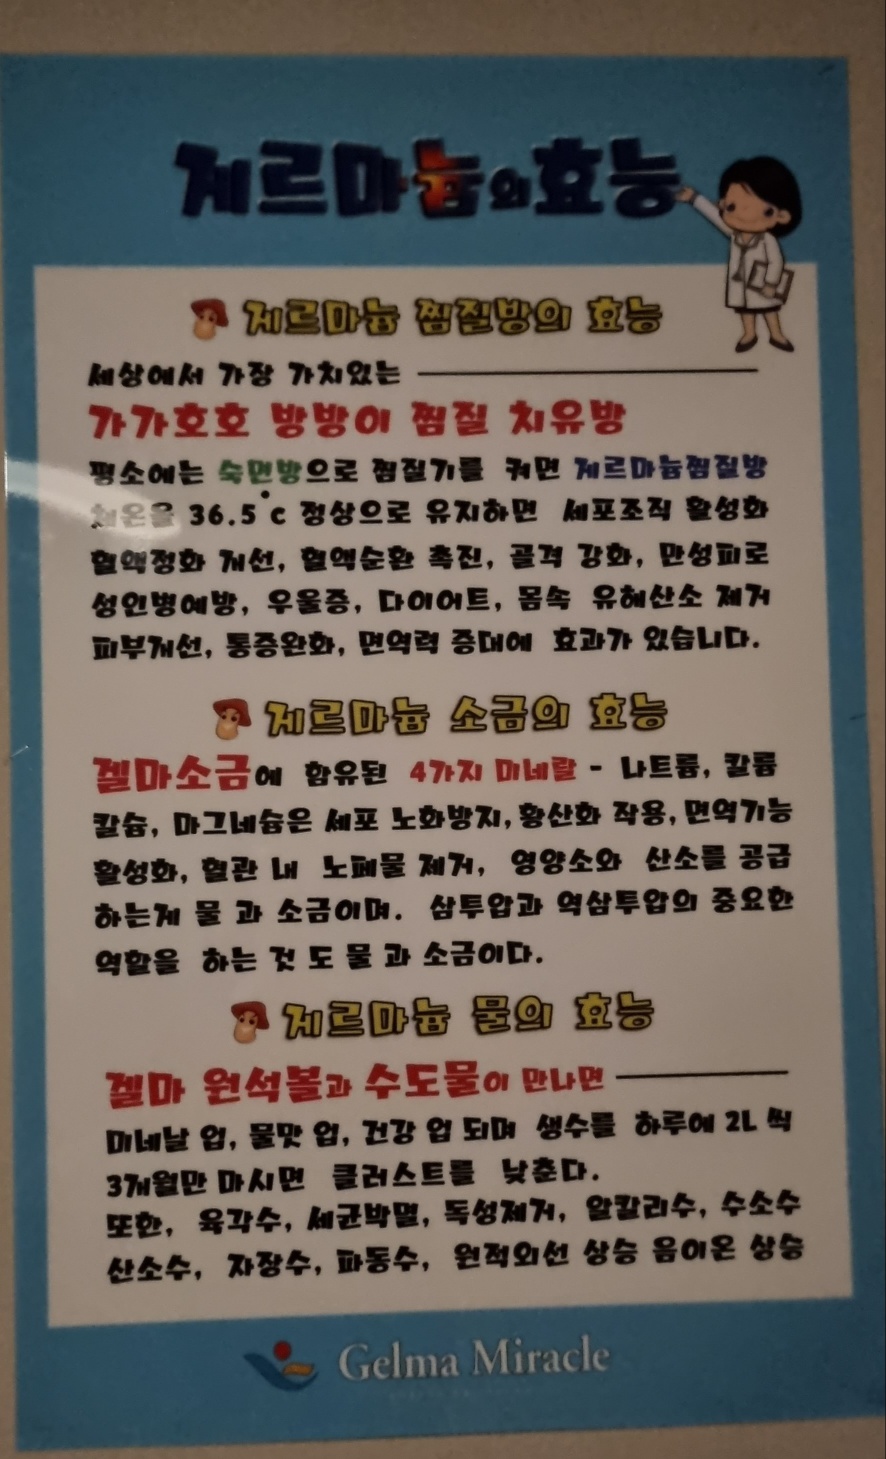 제르마늄의 효능
제르마늄 찜질방의 효능
세상에서 가장 가치있는
가가호호 방방이 찜질 치유방
평소에는 숙면방으로 찜질기를 켜면 제르마늄찜질방
체온을 36.5°c 정상으로 유지하면 세포조직 활성화
혈액정화 개선, 혈액순환 촉진, 골격 강화, 만성피로
성인병예방, 우울증, 다이어트, 몸속 유해산소 제거
피부개선, 통증완화, 면역력 증대에 효과가 있습니다.
제르마늄 소금의 효능
겔마소금에 함유된 4가지 미네랄 - 나트륨, 칼륨
칼슘, 마그네슘은 세포 노화방지, 황산화 작용, 면역기능
활성화, 혈관 내 노폐물 제거, 영양소와 산소를 공급
하는게 물 과 소금이며. 삼투압과 역삼투압의 중요한
역할을 하는 것 도 물 과 소금이다.
제르마늄 물의 효능
겔마 원석볼과 수도물이 만나면
미네날 업, 물맛 업, 건강 업 되며 생수를 하루에 2L 씩
3개월만 마시면 클러스트를 낮춘다.
또한, 육각수, 세균박멸, 독성제거, 알칼리수, 수소수
산소수, 자장수, 파동수, 원적외선 상승 음이온 상승
Gelma Miracle